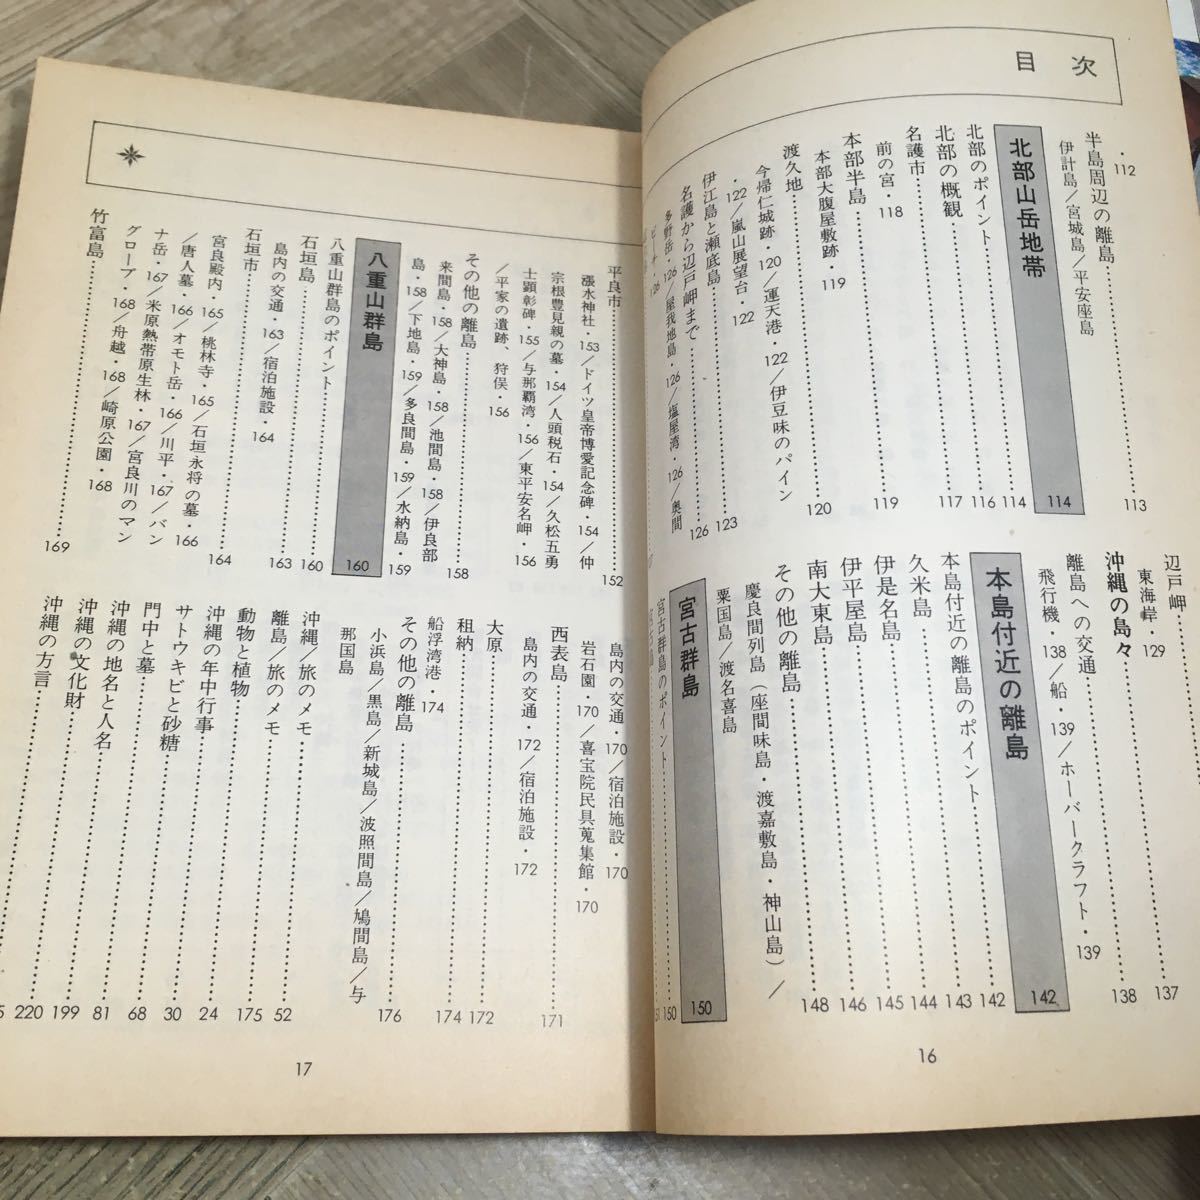 目次
・112
半島周辺の離島……113
伊計島／宮城島／平安座島
北部山岳地帯 114
北部のポイント……114
北部の概観……116
名護市……117
前の宮・118
本部半島……119
本部大腹屋敷跡・119
渡久地……120
今帰仁城跡・120／運天港・122／伊豆味のパイン
・122／嵐山展望台・122
伊江島と瀬底島……123
名護から辺戸岬まで……126
多野岳・126／屋我地島・126／塩屋湾・126／奥間
ビーチ・126
辺戸岬……137
東海岸・129
沖縄の島々……138
離島への交通
飛行機・138／船・139／ホーバークラフト・139
本島付近の離島 142
本島付近の離島のポイント……142
久米島……143
伊是名島……144
伊平屋島……145
南大東島……146
その他の離島……148
慶良間列島（座間味島・渡嘉敷島・神山島）／
粟国島／渡名喜島
宮古群島 150
宮古群島のポイント……150
宮古島
16
平良市……152
漲水神社・153／ドイツ皇帝博愛記念碑・154／仲
宗根豊見親の墓・154／人頭税石・154／久松五勇
士顕彰碑・155／与那覇湾・156／東平安名岬・156
／平家の遺跡、狩俣・156
その他の離島……158
来間島・158／大神島・158／池間島・158／伊良部
島・158／下地島・159／多良間島・159／水納島・159
八重山群島 160
八重山群島のポイント
石垣島……160
島内の交通・163／宿泊施設・164
石垣市……163
宮良殿内・165／桃林寺・165／石垣永将の墓・166
／唐人墓・166／オモト岳・166／川平・167／バン
ナ岳・167／米原熱帯原生林・167／宮良川のマン
グローブ・168／舟越・168／崎原公園・168
164
竹富島……169
島内の交通・170／宿泊施設・170
岩石園・170／喜宝院民具蒐集館・170
西表島……171
島内の交通・172／宿泊施設・172
大原……172
租納……174
船浮湾港・174
その他の離島……176
小浜島／黒島／新城島／波照間島／鳩間島／与
那国島
沖縄／旅のメモ
離島／旅のメモ……52
動物と植物……175
沖縄の年中行事……24
サトウキビと砂糖……30
門中と墓……68
沖縄の地名と人名……81
沖縄の文化財……199
沖縄の方言……220
17